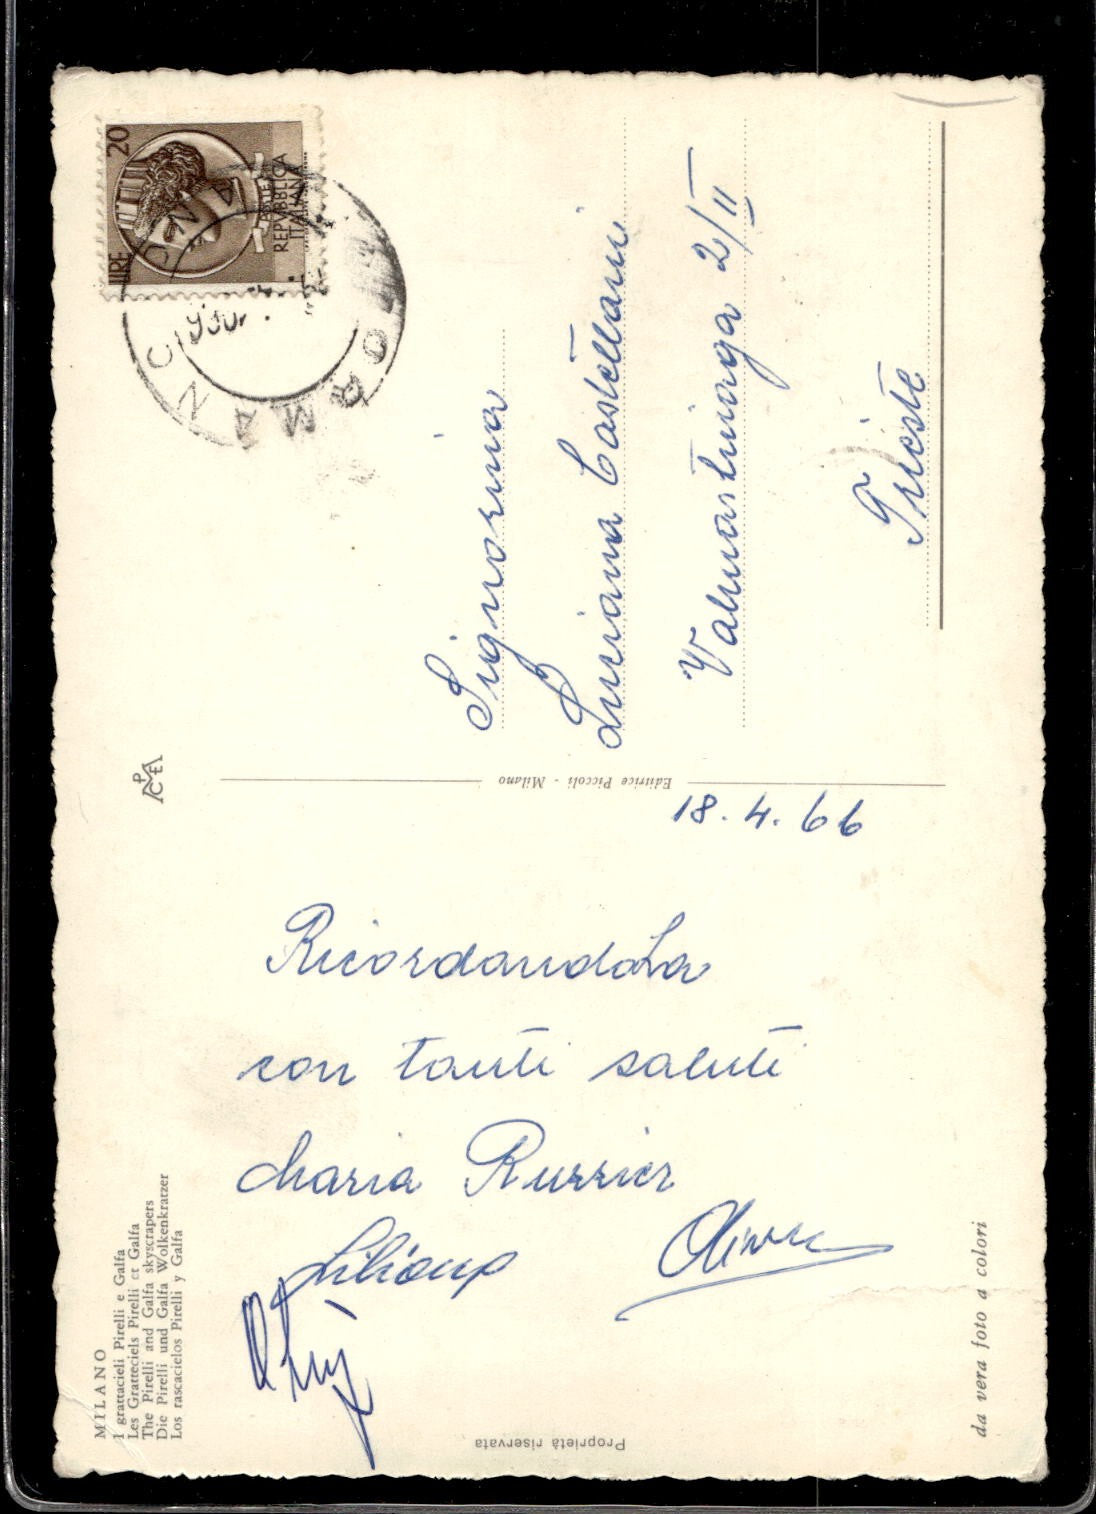 MILANO
I grattacieli Pirelli e Galfa
Les Gratteciels Pirelli et Galfa
The Pirelli and Galfa skyscrapers
Die Pirelli und Galfa Wolkenkratzer
Los rascacielos Pirelli y Galfa
LIRE 20
REPVBBLICA
ITALIANA
18.4.66
RicordandoLa
con tanti saluti
Maria Russier
Liliana
Signorina
Luciana Castellani
Valmartinaga 2/II
Trieste
Editrice Piccoli - Milano
PMCE
Proprietà riservata
da vera foto a colori